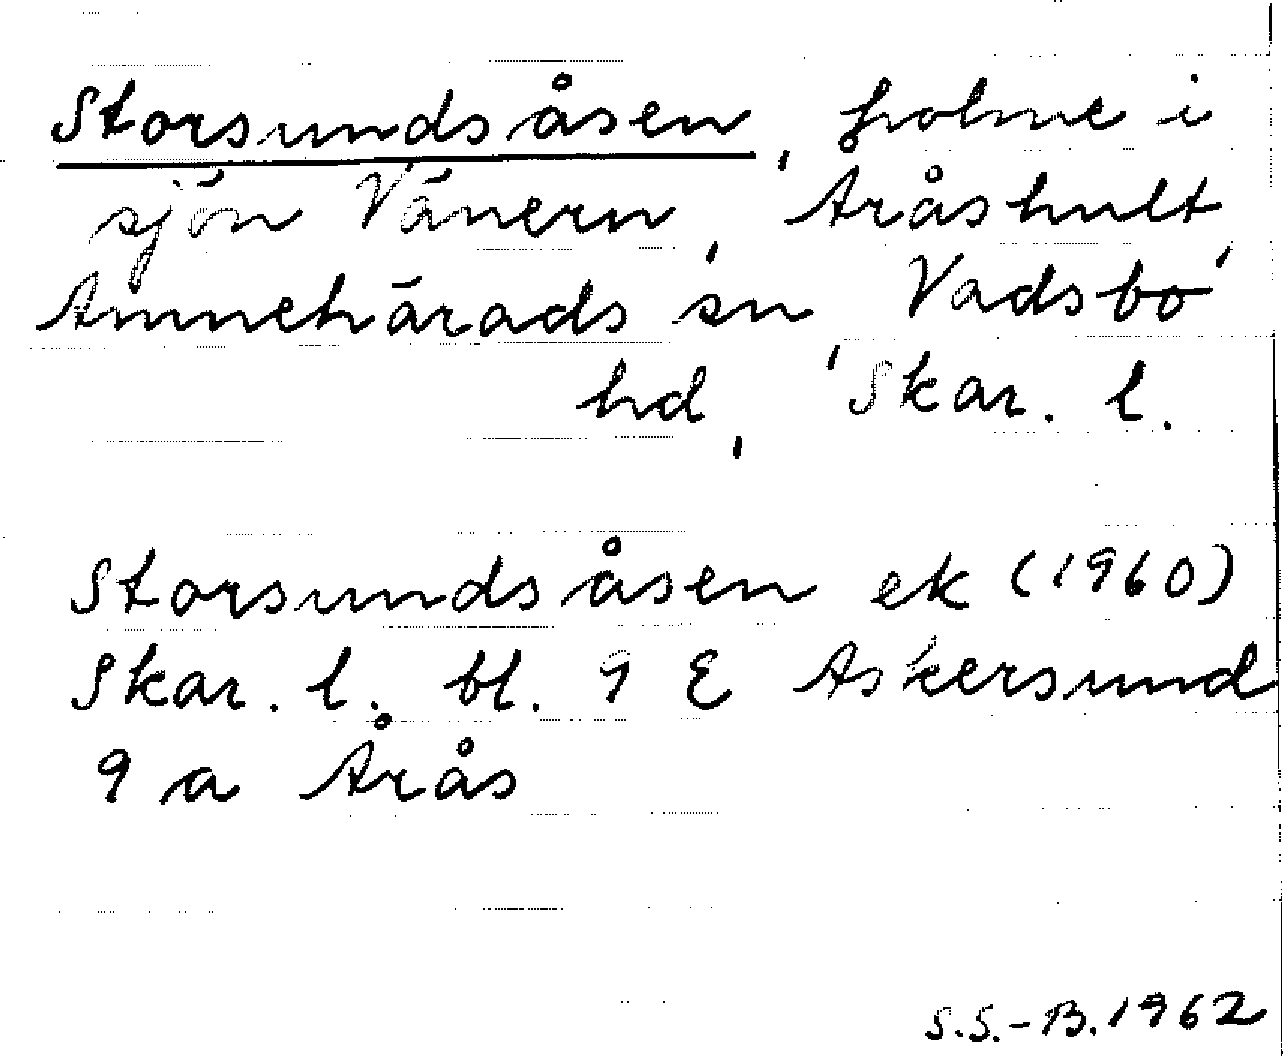 Storsundsåsen, holme i
sjön Vänern, Åråshult,
Amnehärads sn, Vadsbo
hd, Skar. l.
Storsundsåsen ek (1960)
Skar. l. bl. 9 E Askersund
9 a Årås
S.S.-B. 1962